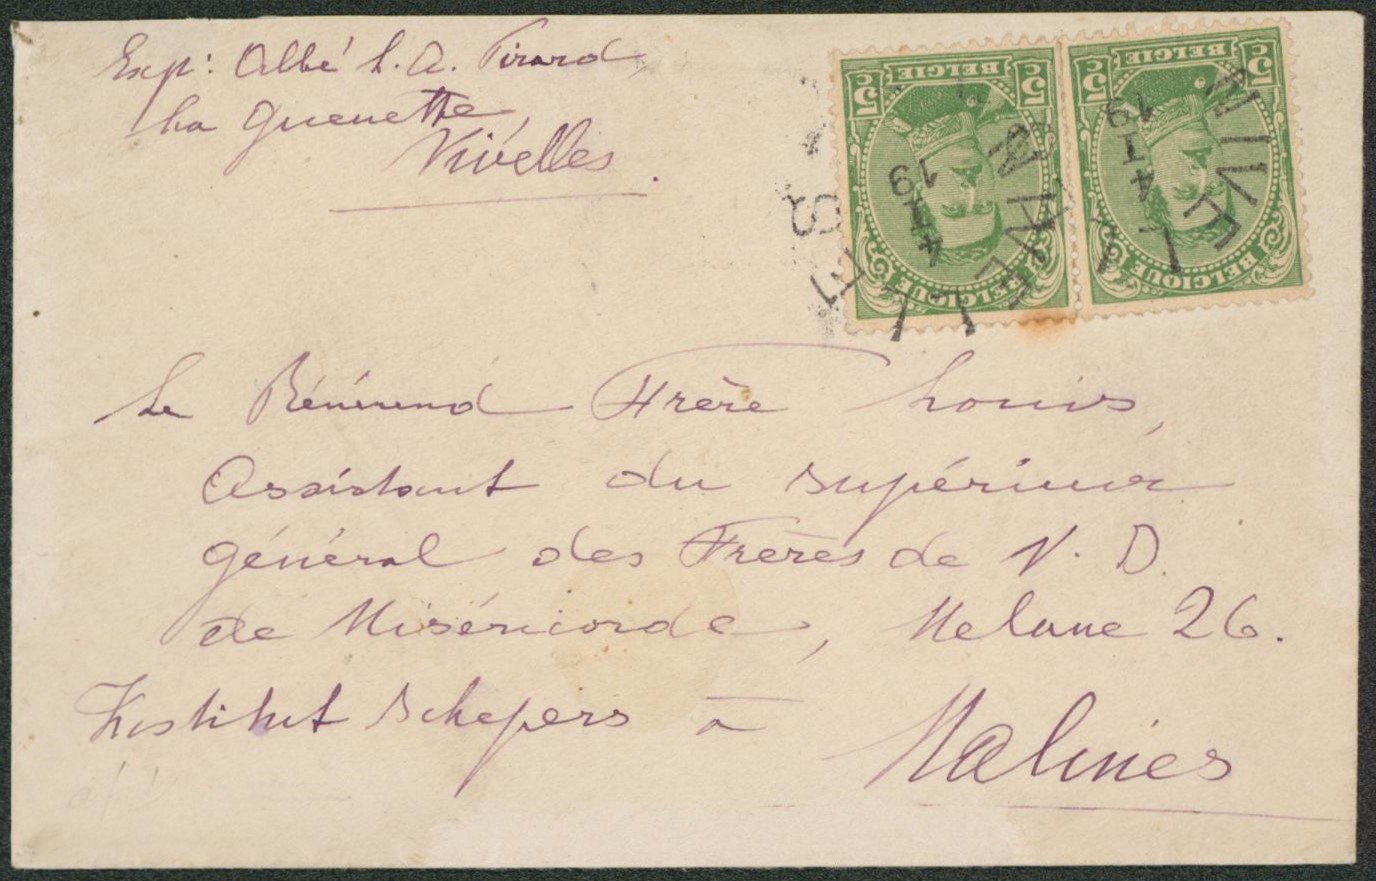 Exp: Abbé L. A. Pirard,
La Guenette,
Nivelles.
5c BELGIE 5c
BELGIQUE
5c BELGIE 5c
BELGIQUE
NIVELLES
4 I 19
NIVEL
4 I 19
Le Révérend Frère Louis,
Assistant du supérieur
général des Frères de N. D.
de Miséricorde, Melane 26.
Institut Schepers à
Malines